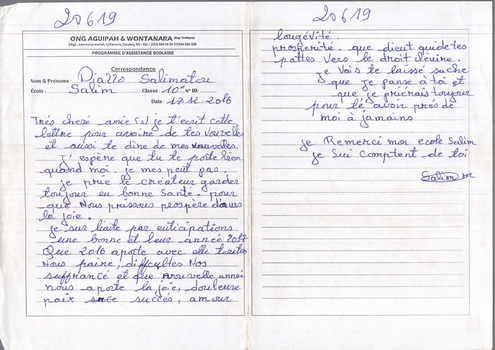 20619
ONG AGUIPAH & WONTANARA
PROGRAMME D'ASSISTANCE SCOLAIRE
Correspondance
Nom & Prénoms : Djallo Salimatou
École : Salim Classe 10è N° ID
Date : 17.12.2016
Très cheré amie (s) je t'écrit cette
lettre pour avoire de tes nouvelles
et aussi te dire de mes nouvelles.
J'espère que tu te porte bien
quand moi je mes peut pas.
je prie le créateur garder
toujour en bonne Santé. pour
que Nous puissens prospère dans
la joie.
je sur liaite par enticipations
une bonne et leur année 2017
Que 2016 aporte avec elle toutes
Nous paine, difficultes Nos
suffrancé et que nouvelle année
nous aporte la joie, douleure
paix succès, amour
20619
longévité.
prosperité. que dieut guide tes
pattes vers le droit cheure.
je vais te laissé sache
que je panse à toi et
que je prierais toujour
pour t'é avoir près de
moi à jamains
je Remerci mon ecole Salim
je Sui Comptent de toi
Salim